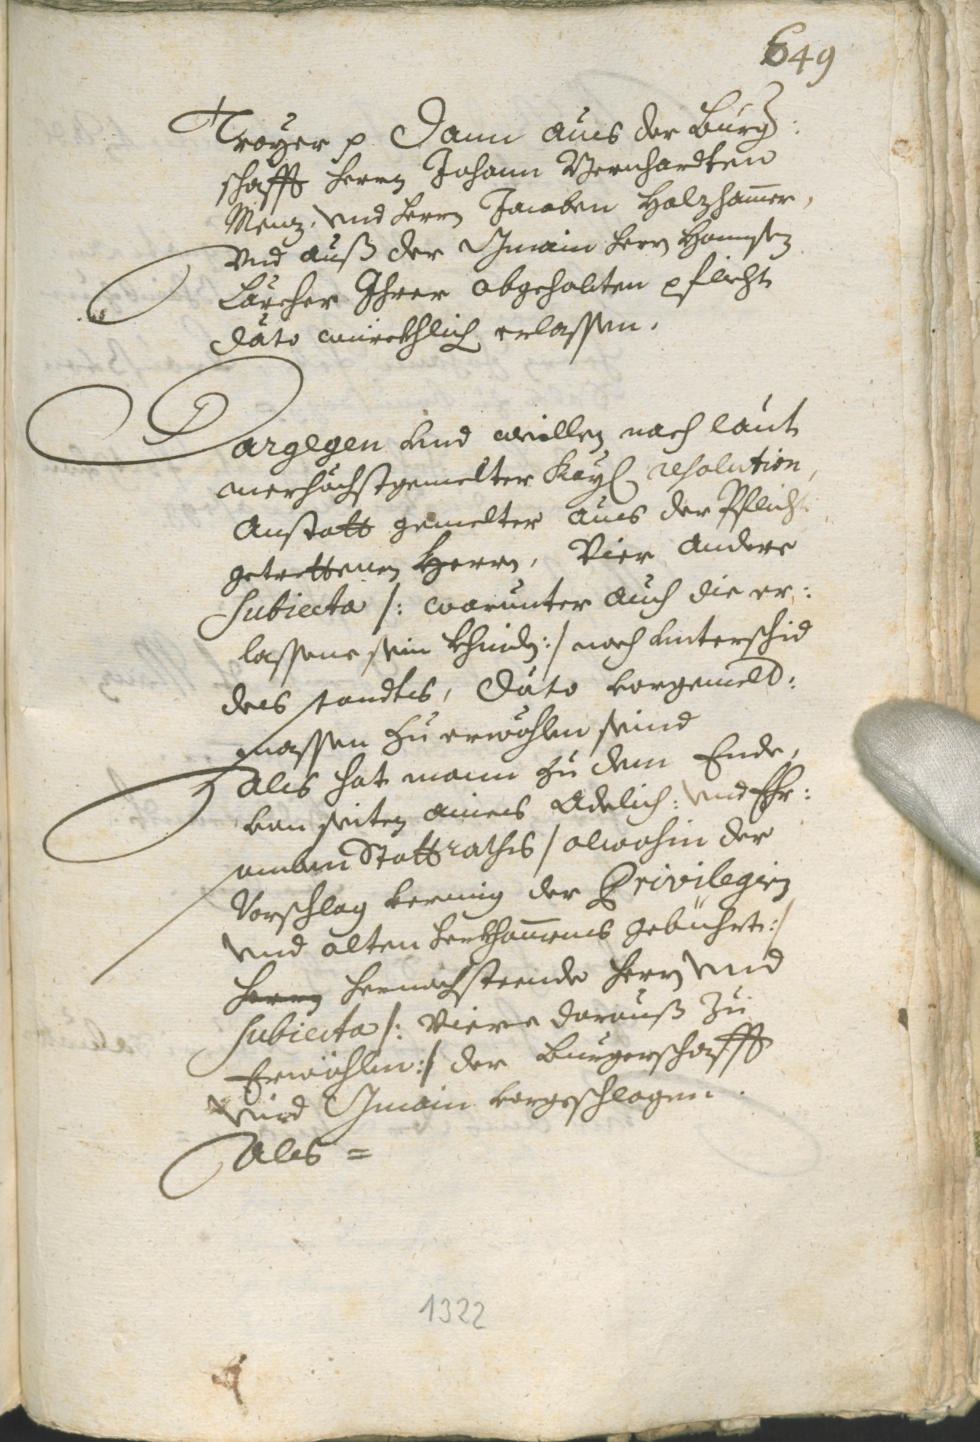 649
Troyer p Dann aus der Burg:
schafft Herrn Johann Bernhardten
Menz, Vnd Herrn Jacoben Holzhamer,
Vnd auß der Gmain Herrn Hannsen
Larcher Ihrer abgeholten pflicht
dato würkhlich erlassen.
Dargegen vnd willen nach laut
merhöchstgemelter Kays. resolution,
Anstatt gemelter aus der Pflicht
getrettenen Herrn, Vier andere
Subiecta /: worunter auch die er:
lassene sein khinden :/ nach vnterschid
des standts, dato vorgemeld:
massen zu erwöhlen seind
Als hat mann zu dem Ende,
von seiten aines Adelich: vnd Ehr:
samben Stattraths / alwohin der
Vorschlag vermüg der Privilegien
vnd alten herkhommens gebührt :/
hernachsteende Herrn vnd
Subiecta /: Viere darauß zu
Erwöhlen :/ der Burgerschafft
vnd Gmain vorgeschlagen.
Als =
1322